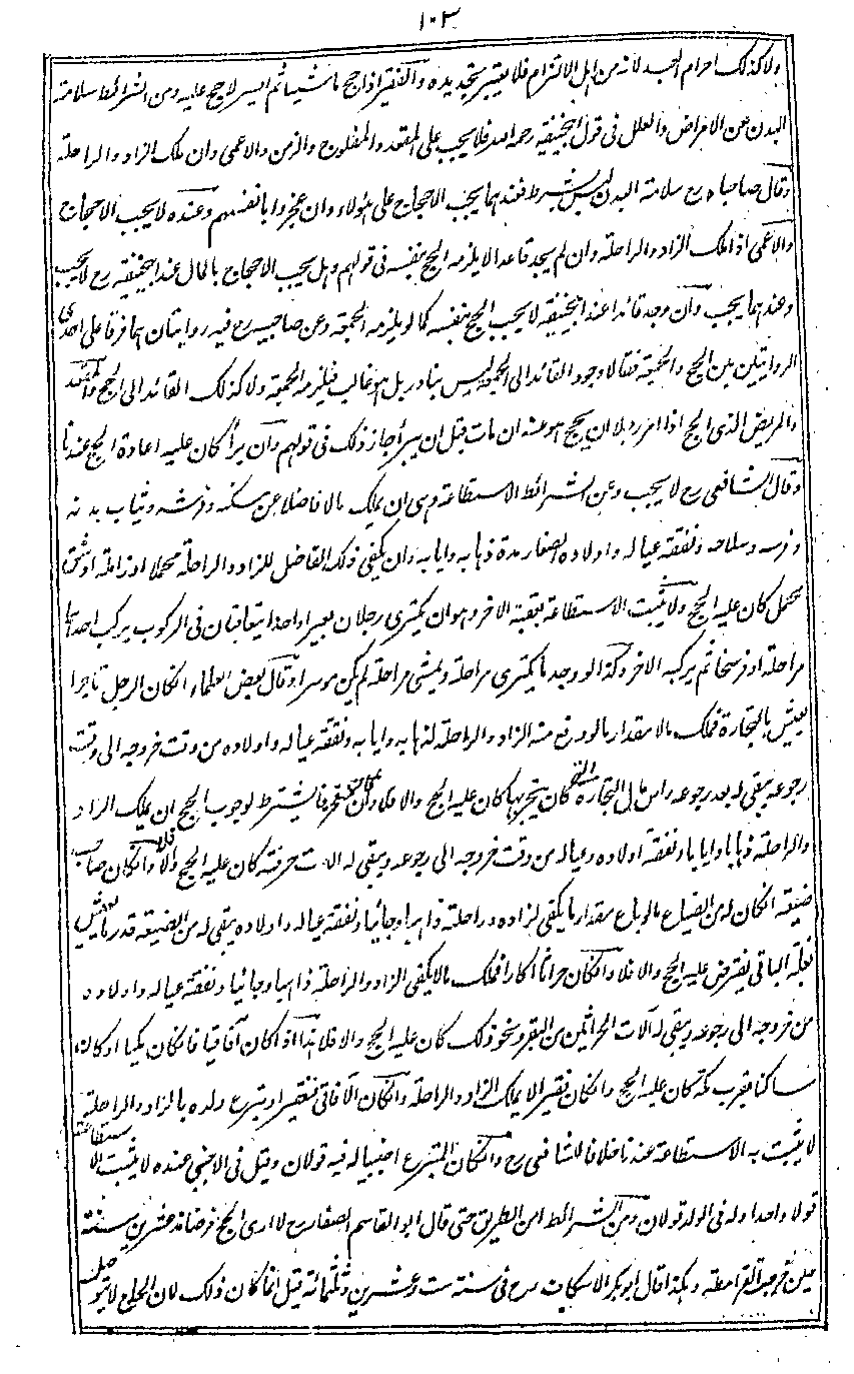 ١٠٣
ولا كذلك احرام العبد لانه من اهل الالتزام فلا يعتبر تجديده والفقير اذا حج ماشيا ثم ايسر لا حج عليه ومن الشرائط سلامة
البدن عن الامراض والعلل فى قول ابيحنيفة رحمه الله فلا يجب على المقعد والمفلوج والزمن والاعمى وان ملك الزاد والراحلة
وقال صاحباه رح سلامة البدن ليس بشرط فعندهما يجب الاحجاج على هؤلاء وان عجزوا بانفسهم وعنده لا يجب الاحجاج
والاعمى اذا ملك الزاد والراحلة وان لم يجد قائدا لا يلزمه الحج بنفسه فى قولهم وهل يجب الاحجاج بالمال عند ابيحنيفة رح لا يجب
وعندهما يجب وان وجد قائدا عند ابيحنيفة لا يجب الحج بنفسه كما لو يلزمه الجمعة وعن صاحبيه رح فيه روايتان هما فرقا على احدى
الروايتين بين الحج والجمعة فقالا وجود القائد الى الجمعة ليس بنادر بل هو غالب فيلزمه الجمعة ولا كذلك القائد الى الحج والمقعد
والمريض الذى الحج اذا امر رجلا ان يحج هو عنه ان مات قبل ان يبرأ جاز ذلك فى قولهم وان برأ كان عليه اعادة الحج عندنا
وقال الشافعى رح لا يجب وعن الشرائط الاستطاعة وهى ان يملك مالا فاضلا عن مسكنه وفرشه وثياب بدنه
وفرسه وسلاحه ونفقة عياله واولاده الصغار مدة ذهابه وايابه وان يكفى ذلك الفاضل للزاد والراحلة محملا او زاملة او شق
محمل كان عليه الحج ولا يثبت الاستطاعة بعقبة الاخر وهو ان يكترى رجلان بعيرا واحدا يتعاقبان فى الركوب يركب احدهما
مرحلة او فرسخا ثم يركبه الاخر وكذا لو وجد ما يكترى مرحلة ويمشى مرحلة لم يكن موسرا وقال بعض العلماء انكان الرجل تاجرا
يعيش بالتجارة فملك مالا مقدار ما لو رفع منه الزاد والراحلة لذهابه وايابه ونفقة عياله واولاده من وقت خروجه الى وقت
رجوعه يبقى له بعد رجوعه رأس مال التجارة التى كان يتجر بها كان عليه الحج والا فلا وان كان محترفا يشترط لوجوب الحج ان يملك الزاد
والراحلة ذهابا وايابا ونفقة اولاده وعياله من وقت خروجه الى رجوعه ويبقى له الات حرفته كان عليه الحج والا فلا وان كان صاحب
ضيعة انكان له من الضياع ما لو باع مقدار ما يكفى لزاده وراحلته ذاهبا وجائيا ونفقة عياله واولاده يبقى له من الضيعة قدر ما يعيش
بغلة الباقى يفترض عليه الحج والا فلا وانكان حراثا اكارا فملك مالا يكفى الزاد والراحلة ذاهبا وجائيا ونفقة عياله واولاده
من خروجه الى رجوعه ويبقى له آلات الحراثين من البقر ونحو ذلك كان عليه الحج والا فلا هذا اذا كان آفاقيا فانكان مكيا او كان
ساكنا بقرب مكة كان عليه الحج وانكان فقيرا لا يملك الزاد والراحلة وانكان الآفاقى فقيرا وتبرع ولده بالزاد والراحلة
لا يثبت به الاستطاعة عندنا خلافا للشافعى رح وانكان المتبرع اجنبيا له فيه قولان وقيل فى الاجنبى عنده لا يثبت الاستطاعة
قولا واحدا وله فى الولد قولان ومن الشرائط امن الطريق حتى قال ابو القاسم الصفار رح لا ارى الحج فرضا منذ عشرين سنة
حين خرجت القرامطة وهكذا قال ابو بكر الاسكاف رح فى سنة ست وعشرين وثلثمائة قيل انما كان ذلك لان الحاج لا يتوصل